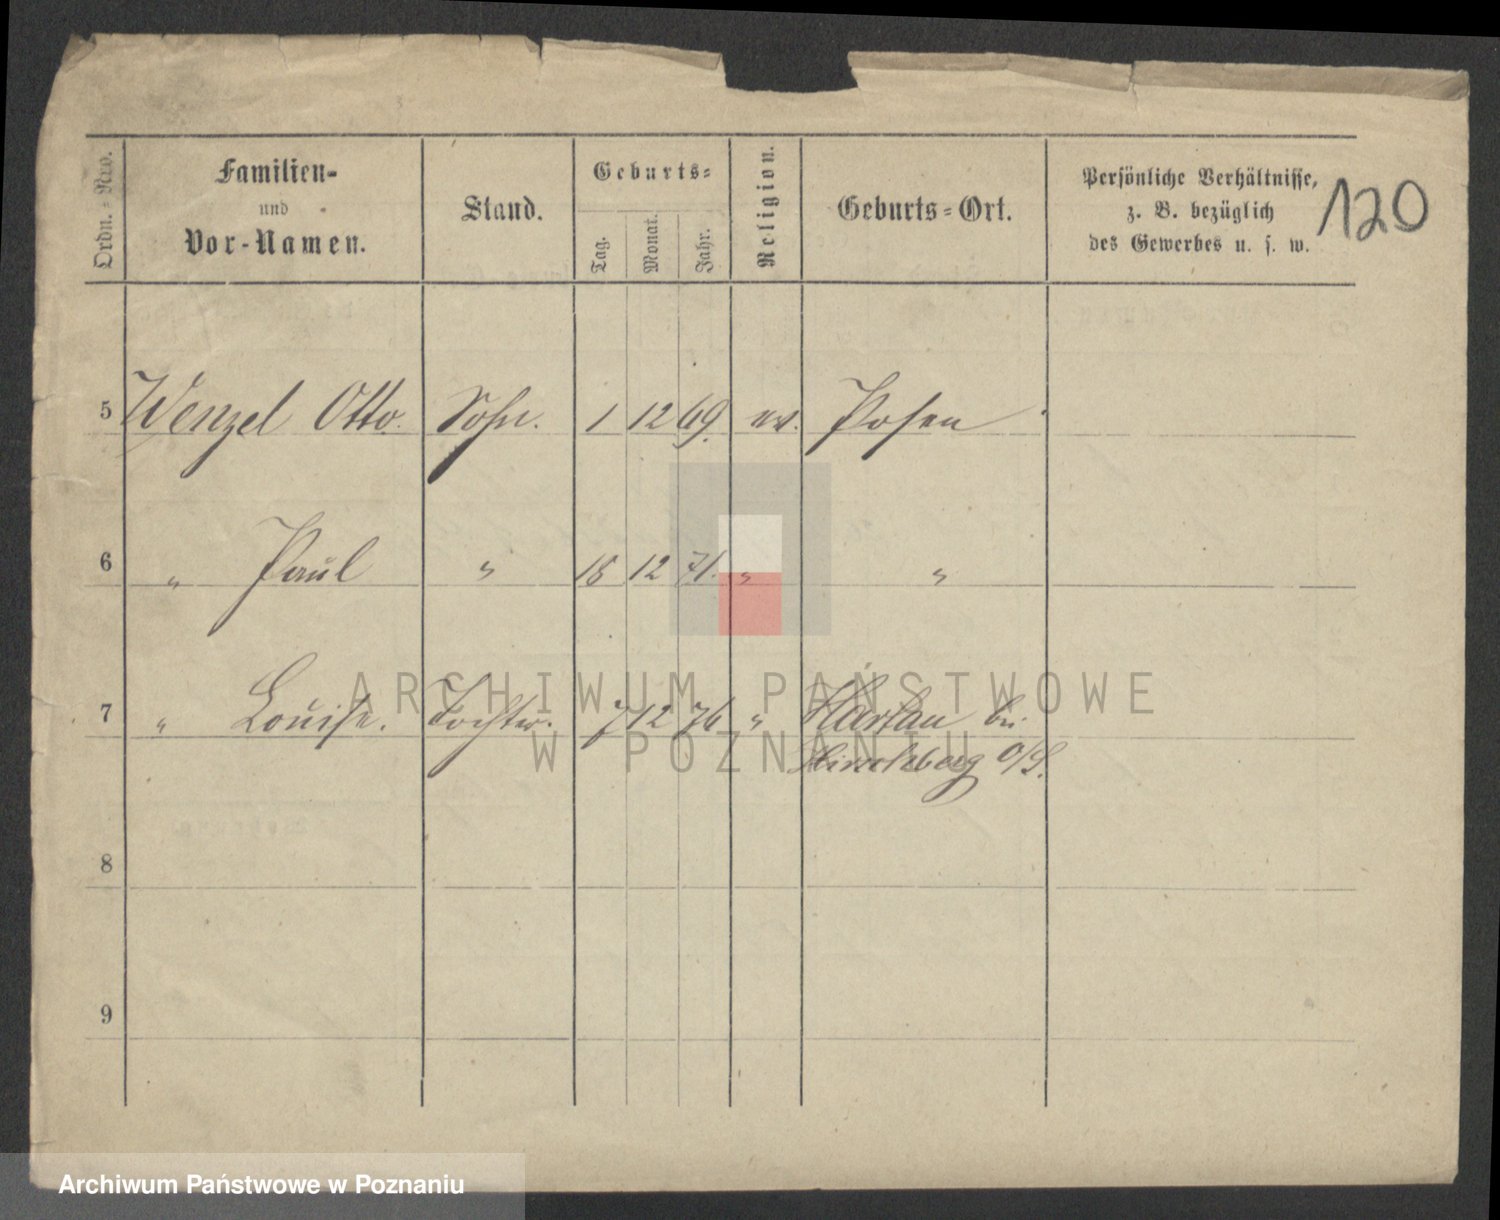 120
Ordn.-Nro.
Familien-
und
Vor-Namen.
Stand.
Geburts-
Tag.
Monat.
Jahr.
Religion.
Geburts-Ort.
Persönliche Verhältnisse,
z. B. bezüglich
des Gewerbes u. s. w.
5 Wenzel Otto. Sohn. 1 12 69. ev. Posen
6 " Paul " 18 12 71. " "
7 " Louise. Tochter. 7 12 76 " Hartau bei
Hirschberg O/S.
8
9
ARCHIWUM PAŃSTWOWE
W POZNANIU
Archiwum Państwowe w Poznaniu